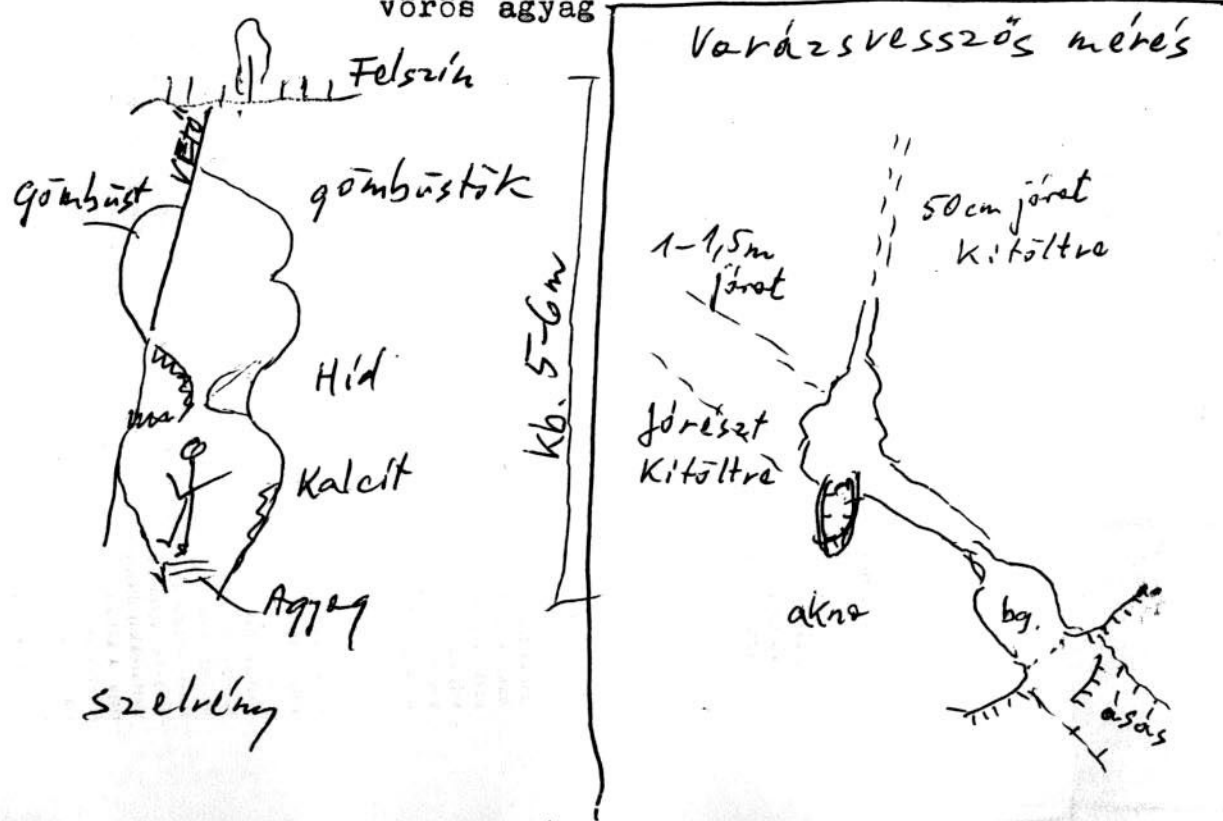 vörös agyag
Felszín
Vető
Gömbüst
gömbüstök
Híd
Kalcit
Agyag
szelvény
kb. 5-6m
Varázsvesszős mérés
50cm járat
kitöltve
1-1,5m
járat
Jórészt
kitöltve
akna
bg.
ásás